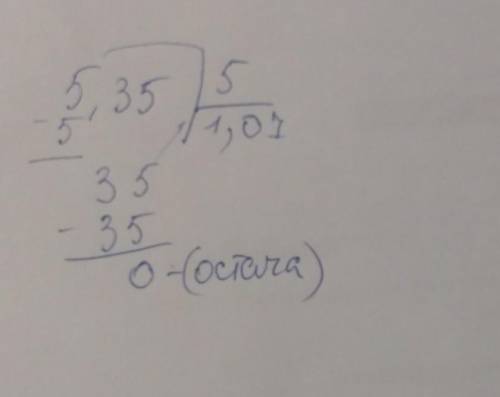 5,35 5
- 5 1,07
35
- 35
0 -(остача)